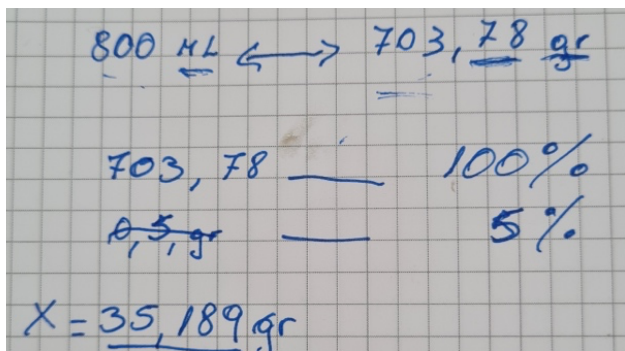 800 ML ⟷ 703,78 gr
703,78 — 100%
0,5,gr — 5%
X = 35,189 gr